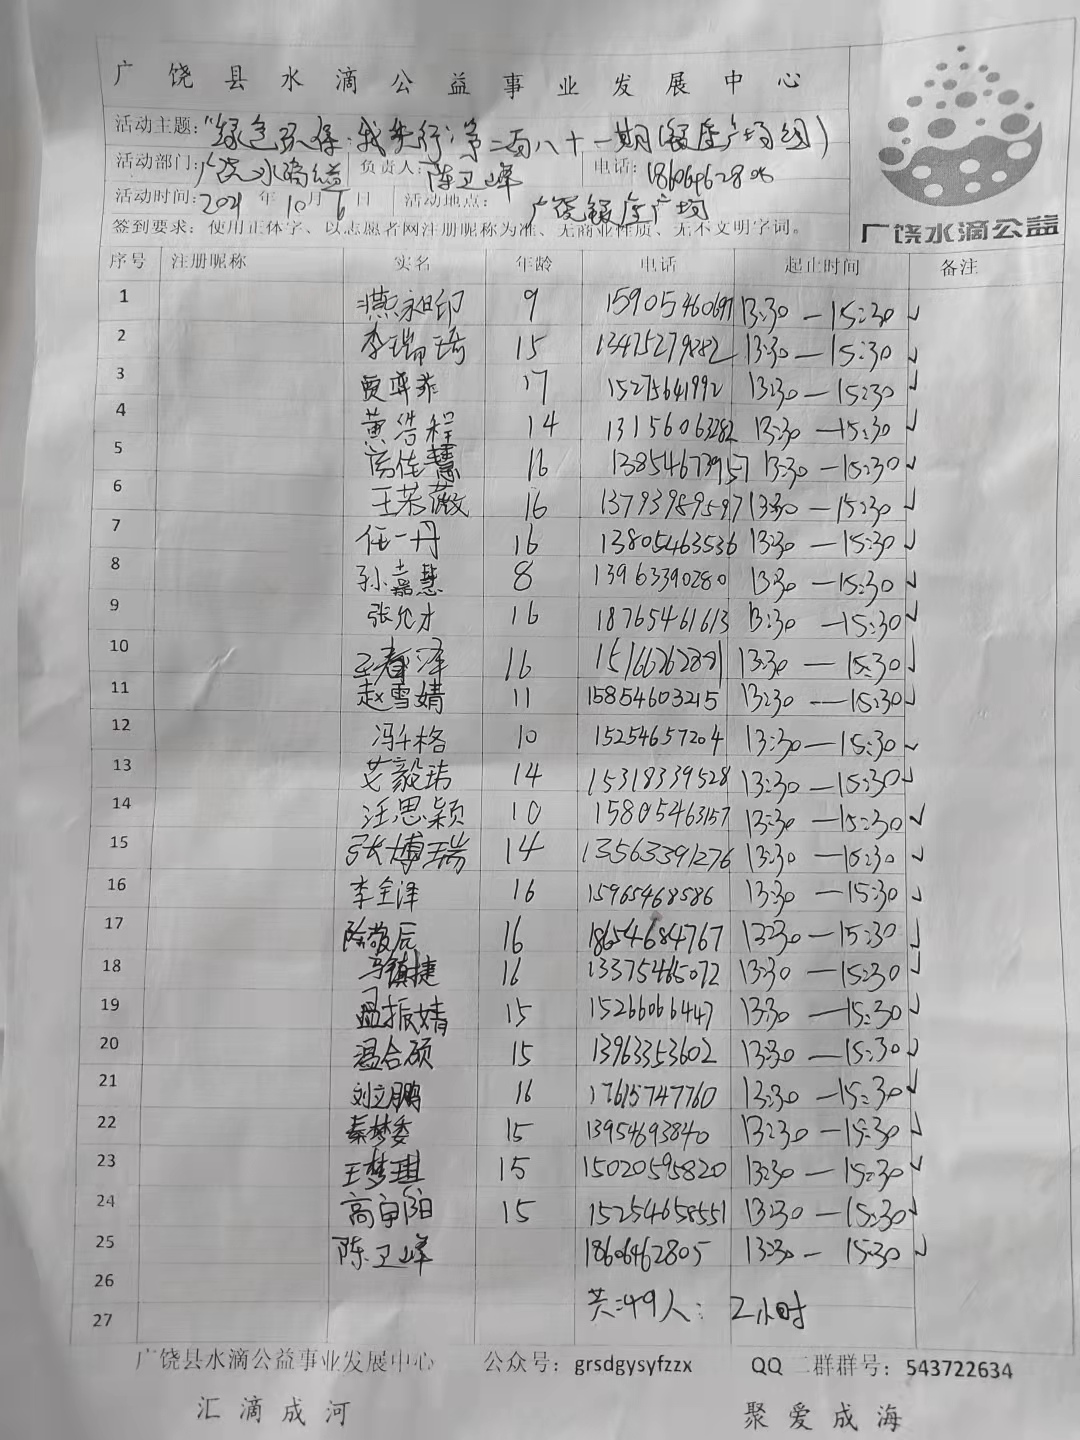 广饶县水滴公益事业发展中心
活动主题："绿色环保·我先行"第二百八十一期(银座广场组)
活动部门：广饶水滴公益 负责人：陈卫峰 电话：18606462805
活动时间：2021年10月6日 活动地点：广饶银座广场
签到要求：使用正体字、以志愿者网注册昵称为准、无商业性质、无不文明字词。
广饶水滴公益
序号 注册昵称 实名 年龄 电话 起止时间 备注
1 燕昶印 9 15905460697 13:30—15:30 ✓
2 李瑞琦 15 13475279882 13:30—15:30 ✓
3 贾弈菲 17 15275641992 13:30—15:30 ✓
4 黄浩程 14 13156063282 13:30—15:30 ✓
5 佳慧 16 13854673957 13:30—15:30 ✓
6 王荣薇 16 13793959597 13:30—15:30 ✓
7 任一丹 16 13805463536 13:30—15:30 ✓
8 孙嘉慧 8 13963390280 13:30—15:30 ✓
9 张允才 16 18765461613 13:30—15:30 ✓
10 王春泽 16 15166262891 13:30—15:30 ✓
11 赵雪婧 11 15854603215 13:30—15:30 ✓
12 冯千格 10 15254657204 13:30—15:30 ✓
13 艾毅玮 14 15318339528 13:30—15:30 ✓
14 汪思颖 10 15805463157 13:30—15:30 ✓
15 张博瑞 14 13563391276 13:30—15:30 ✓
16 李全泽 16 15965468586 13:30—15:30 ✓
17 徐敬辰 16 18654684767 13:30—15:30 ✓
18 马镇捷 16 13375465072 13:30—15:30 ✓
19 孟振婧 15 15266066447 13:30—15:30 ✓
20 温合硕 15 13963353602 13:30—15:30 ✓
21 刘立鹏 16 17615747760 13:30—15:30 ✓
22 秦梦委 15 13954693840 13:30—15:30 ✓
23 王梦琪 15 15020595820 13:30—15:30 ✓
24 高宇阳 15 15254658551 13:30—15:30 ✓
25 陈卫峰 18606462805 13:30—15:30 ✓
26
共：49人：2小时
27
广饶县水滴公益事业发展中心 公众号：grsdgysyfzzx QQ二群群号：543722634
汇滴成河 聚爱成海